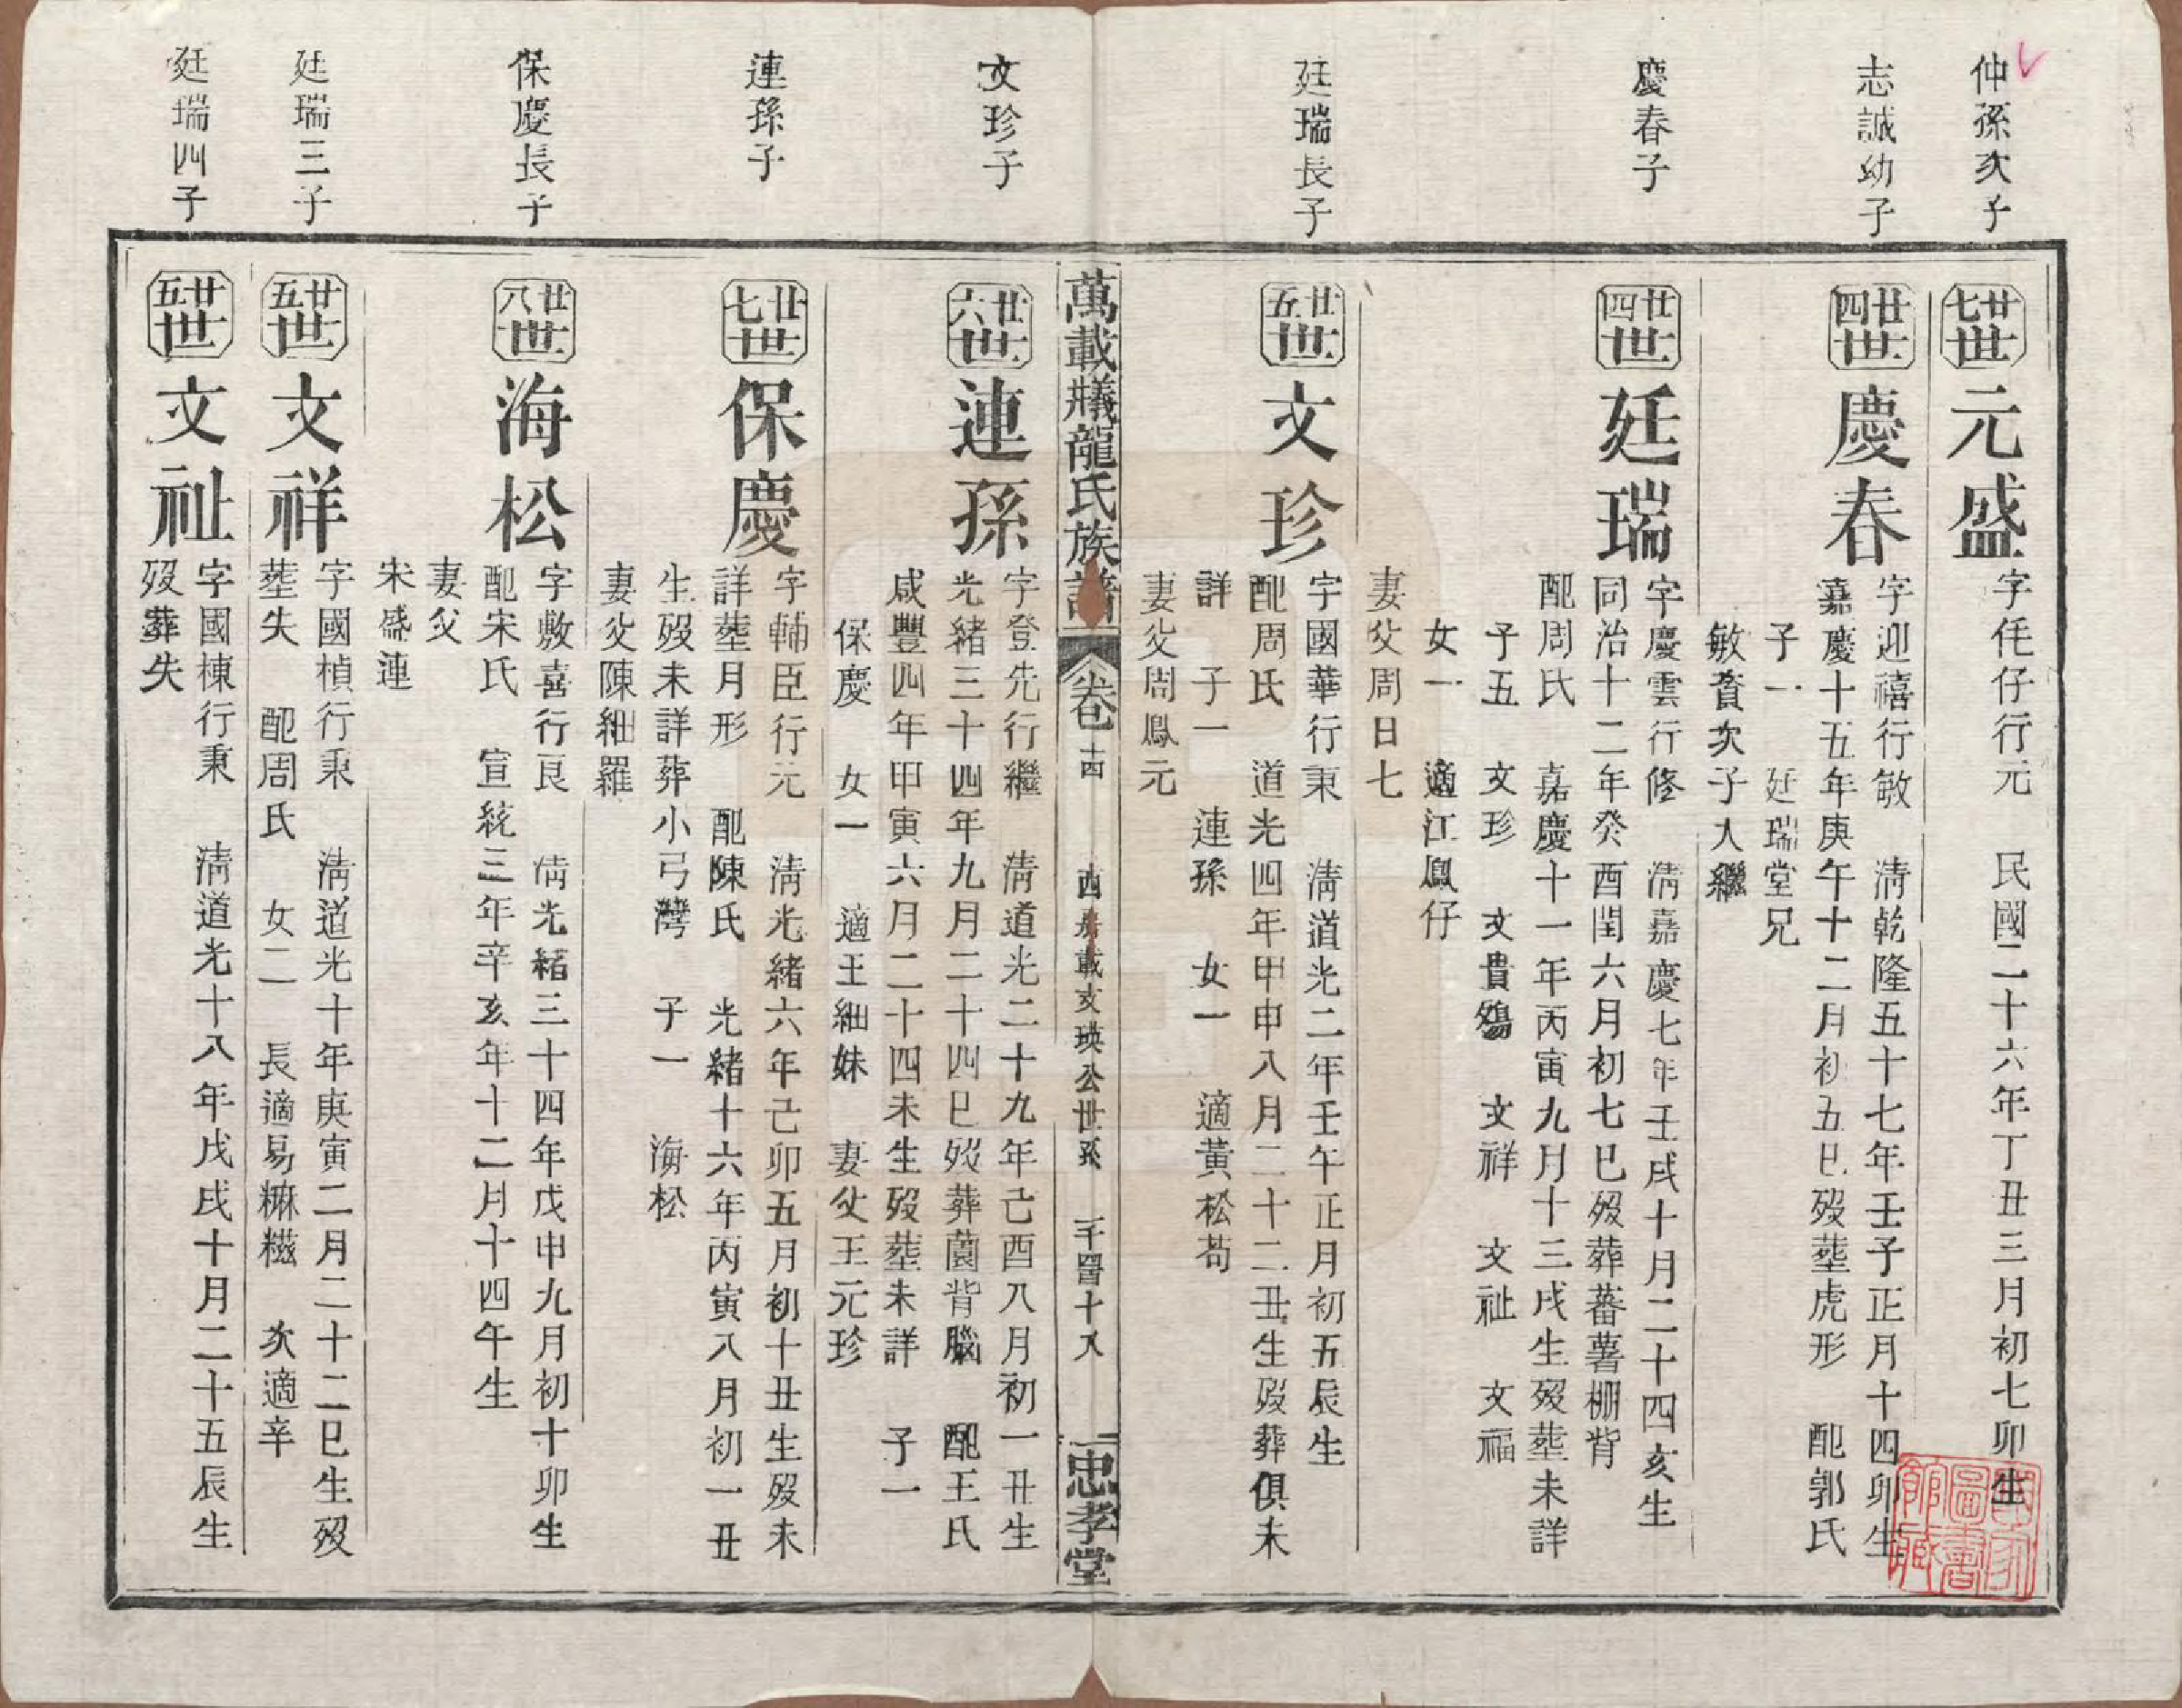 仲孫次子
廿七世
元盛
字仛仔行元　民國二十六年丁丑三月初七卯生
志誠幼子
廿四世
慶春
字迎禧行敏　淸乾隆五十七年壬子正月十四卯生
嘉慶十五年庚午十二月初五巳歿塟虎形　配郭氏
子一　廷瑞堂兄
敏賫次子入繼
慶春子
廿四世
廷瑞
字慶雲行修　淸嘉慶七年壬戌十月二十四亥生
同治十二年癸酉閏六月初七巳歿葬蕃薯棚背
配周氏　嘉慶十一年丙寅九月十三戌生歿塟未詳
子五　文珍　文貴殤　文祥　文祉　文福
女一　適江鳳仔
妻父周日七
廷瑞長子
廿五世
文珍
字國華行秉　淸道光二年壬午正月初五辰生
配周氏　道光四年甲申八月二十二丑生歿葬俱未
詳　子一　連孫　女一　適黃松苟
妻父周鳳元
萬載㸁龍氏族譜
卷十四
忠孝堂
文珍子
廿六世
連孫
字登先行繼　淸道光二十九年己酉八月初一丑生
光緒三十四年九月二十四巳歿葬薗背腦　配王氏
咸豐四年甲寅六月二十四未生歿塟未詳　子一
保慶　女一　適王細妹　妻父王元珍
連孫子
廿七世
保慶
字輔臣行元　淸光緖六年己卯五月初十丑生歿未
詳塟月形　配陳氏　光緒十六年丙寅八月初一丑
生歿未詳葬小弓灣　子一　海松
妻父陳細羅
保慶長子
廿八世
海松
字敷喜行艮　淸光緖三十四年戊申九月初十卯生
配宋氏　宣統三年辛亥年十二月十四午生
妻父
宋盛連
廷瑞三子
廿五世
文祥
字國楨行秉　淸道光十年庚寅二月二十二巳生歿
塟失　配周氏　女二　長適易糍　次適辛
廷瑞四子
廿五世
文祉
字國棟行秉　淸道光十八年戊戌十月二十五辰生
歿葬失